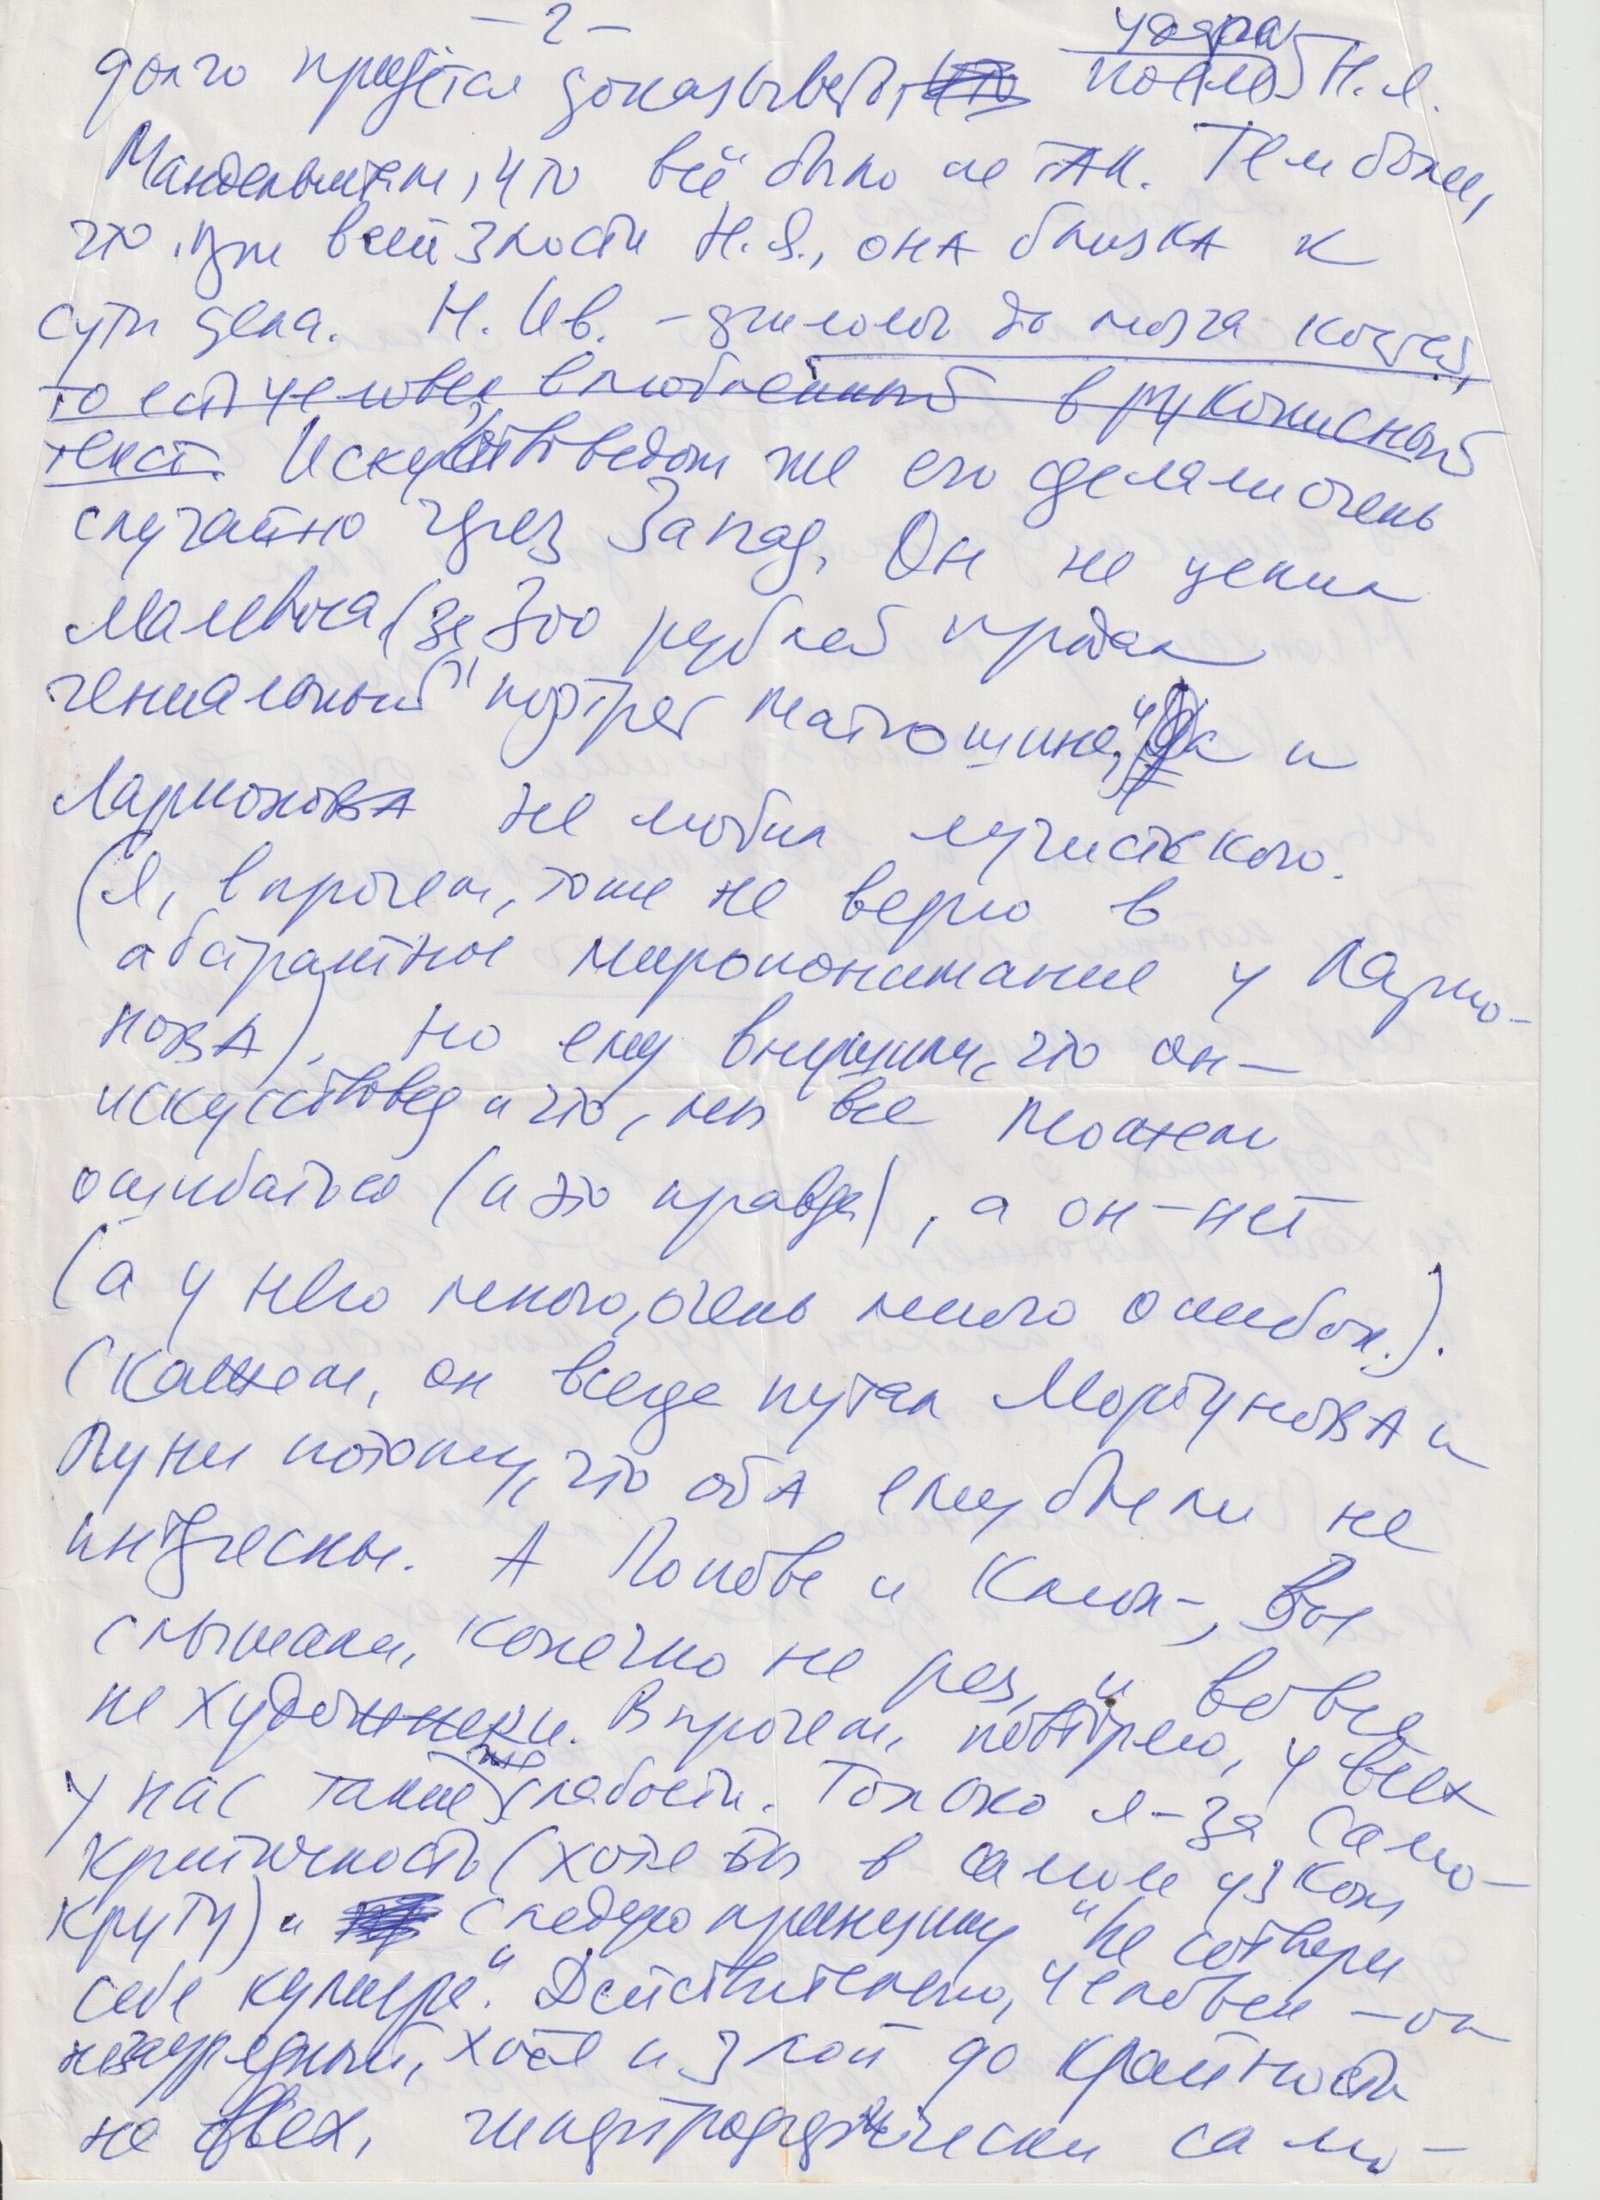 – 2 –
удара
долго придётся доказывать, что после Н.Я.
Мандельштам, что всё было не так. Тем более,
что, при всей злости Н.Я., она близка к
сути дела. Н. Ив. – филолог до мозга костей,
то есть человек влюбленный в рукописный
текст. Искусствоведом же его сделали очень
случайно через Запад. Он не ценил
Малевича (за 300 рублей продал
гениальный портрет Матюшина), да и
Ларионова не любил лучистского.
(Я, впрочем, тоже не верю в
абстрактное миропонимание у Ларио-
нова), но ему внушили, что он –
искусствовед и что, мы все можем
ошибаться (и это правда), а он – нет
(а у него много, очень много ошибок.).
(Скажем, он всегда путал Моргунова и
Пуни потому, что оба ему были не
интересны. А Попова и Клюн –, Вы
слышали, конечно не раз, и вовсе
не художники. Впрочем, повторяю, у всех
у нас такие же слабости. Только я – за само-
критичность (хотя бы в самом узком
кругу) и следую принципу "не сотвори
себе кумира". Действительно, человек – он
незаурядный, хотя и злой до крайности
на всех, гипертрофически само-